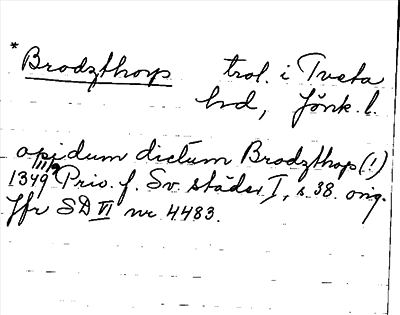 * Brodzthorp trol. i Tveta
hd, Jönk. l.
opidum dictum Brodzthop (!)
1349 11/9 Priv. f. Sv. städer I, s. 38. orig.
Jfr SD VI nr 4483.